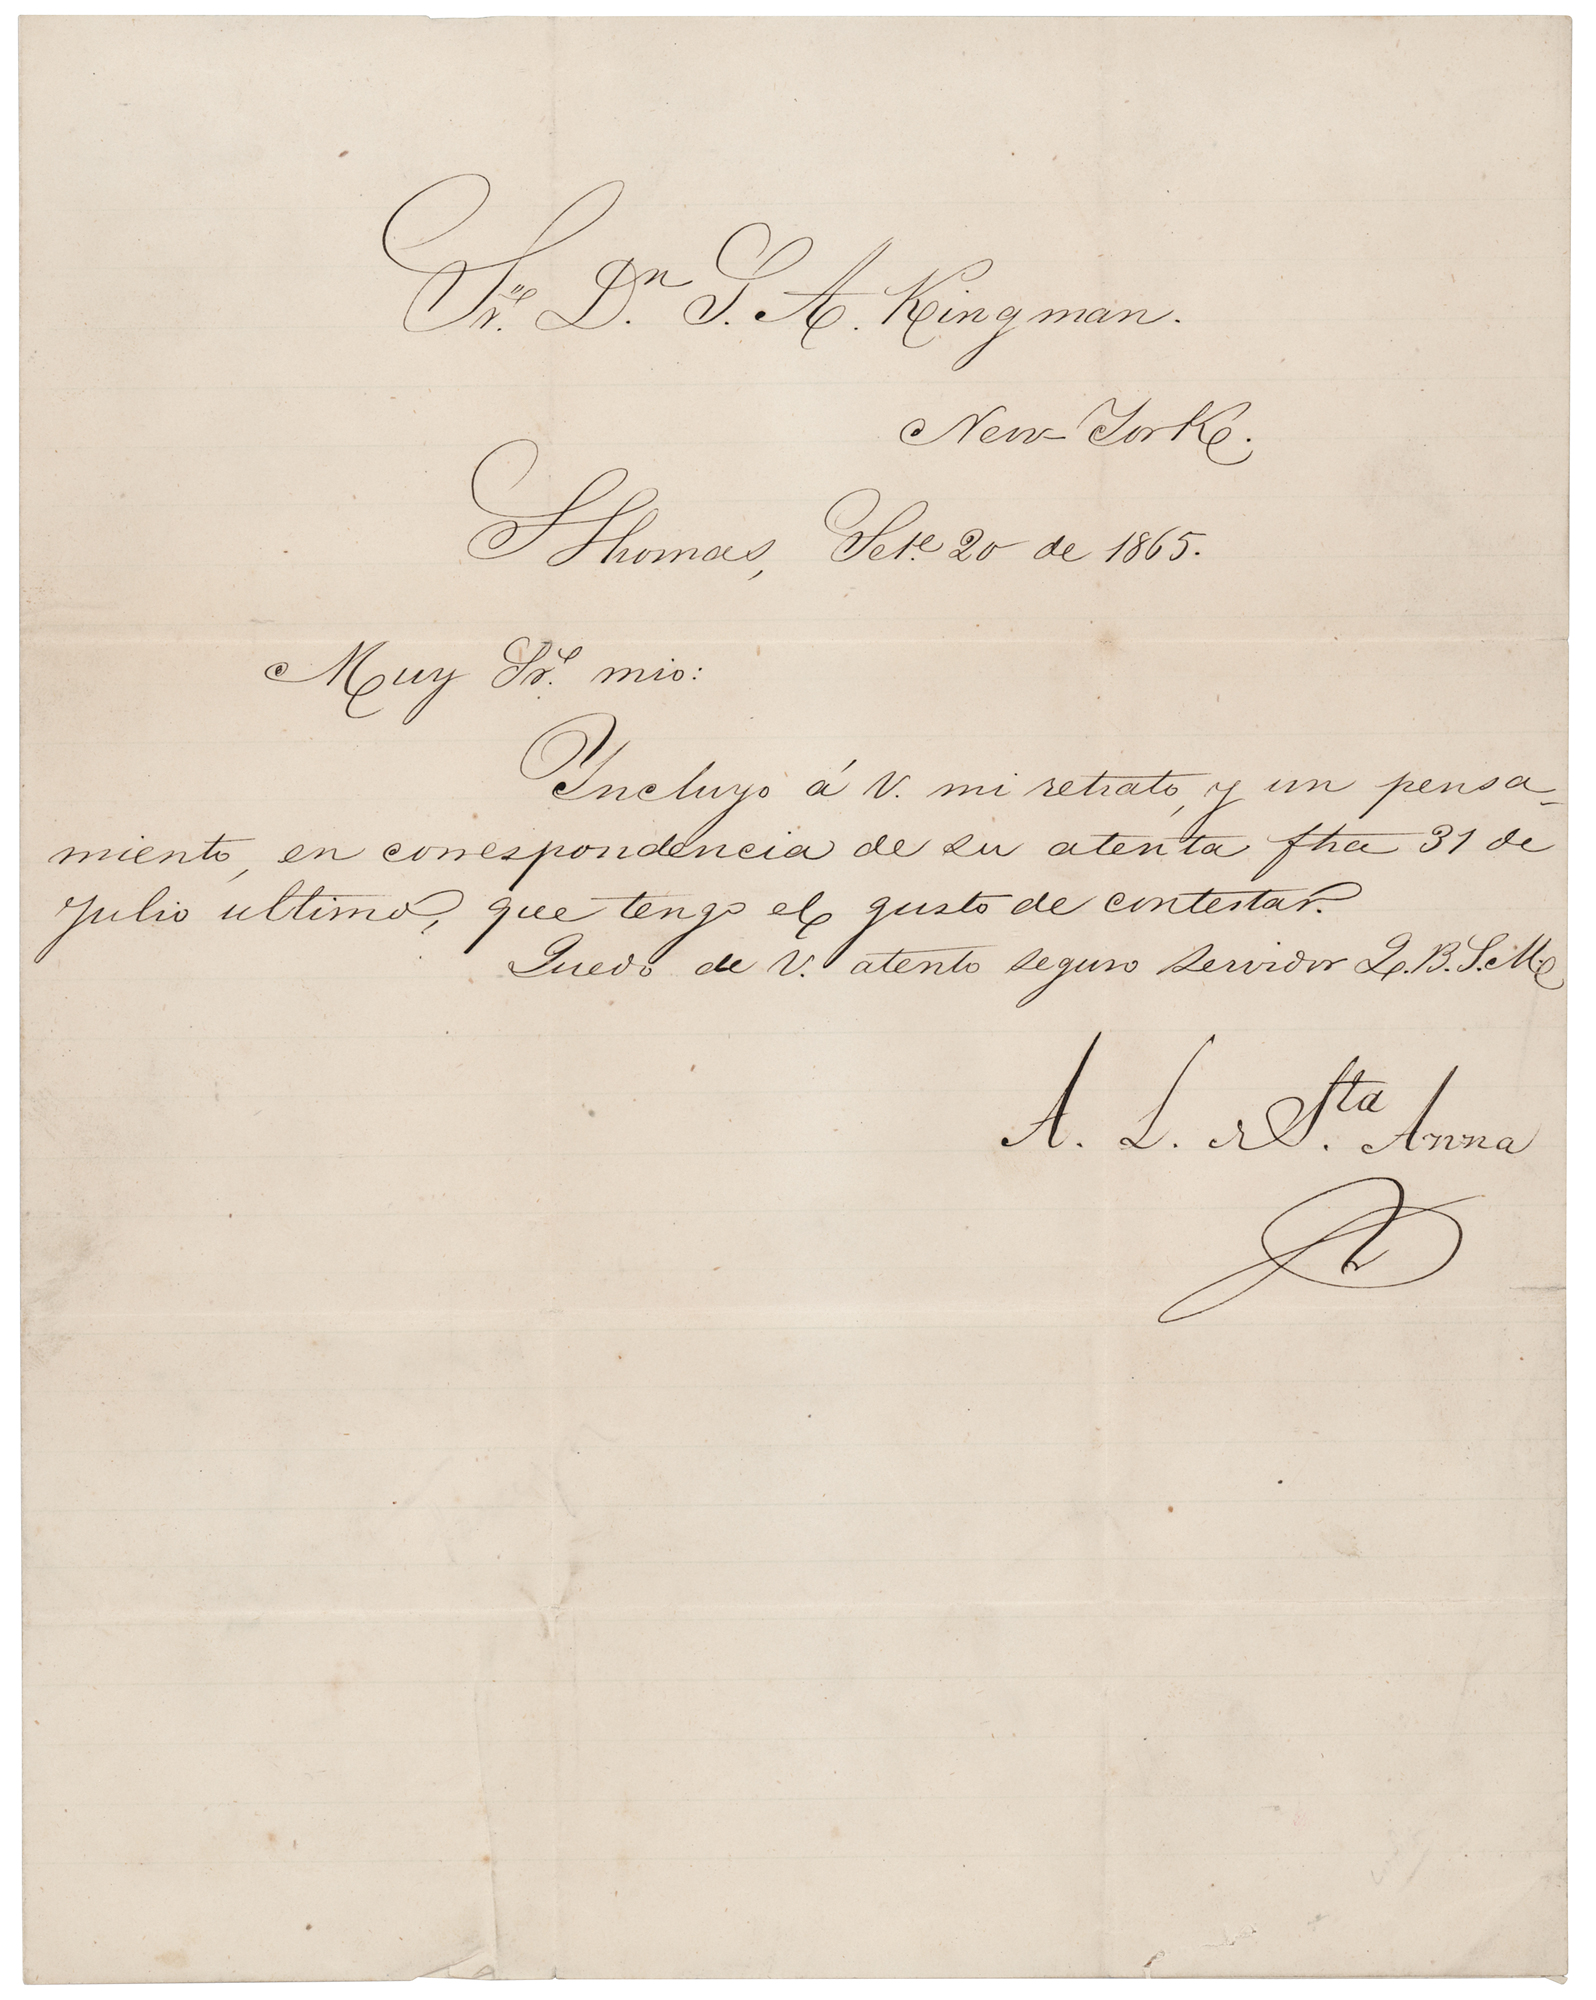 Sr. Dn. S. A. Kingman.
New-York.
S Thomas, Sete. 20 de 1865.
Muy Sr. mio:
Incluyo á V. mi retrato, y un pensa-
miento, en correspondencia de su atenta fha 31 de
Julio ultimo, que tengo el gusto de contestar.
Quedo de V. atento seguro servidor Q.B.S.M.
A. L. de Sta. Anna